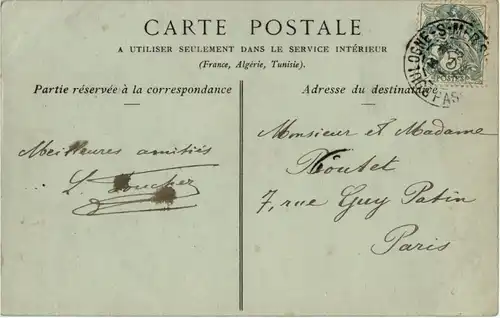 CARTE POSTALE
A UTILISER SEULEMENT DANS LE SERVICE INTÉRIEUR
(France, Algérie, Tunisie).
Partie réservée à la correspondance
Adresse du destinataire
BOULOGNE-S-MER
POSTES
Meilleures amitiés
Monsieur et Madame
7, rue Guy Patin
Paris